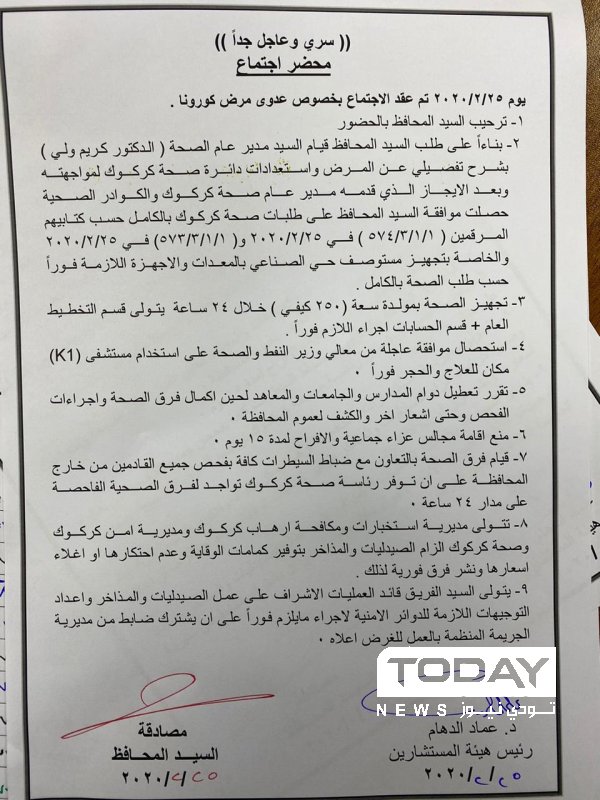 (( سري وعاجل جداً ))
محضر اجتماع
يوم ٢٠٢٠/٢/٢٥ تم عقد الاجتماع بخصوص عدوى مرض كورونا .
١- ترحيب السيد المحافظ بالحضور
٢- بناءاً على طلب السيد المحافظ قيام السيد مدير عام الصحة ( الدكتور كريم ولي )
بشرح تفصيلي عن المرض واستعدادات دائرة صحة كركوك لمواجهته
وبعد الايجاز الذي قدمه مدير عام صحة كركوك والكوادر الصحية
حصلت موافقة السيد المحافظ على طلبات صحة كركوك بالكامل حسب كتابيهم
المرقمين ( ٥٧٤/٣/١/١ ) في ٢٠٢٠/٢/٢٥ و( ٥٧٣/٣/١/١ ) في ٢٠٢٠/٢/٢٥
والخاصة بتجهيز مستوصف حي الصناعي بالمعدات والاجهزة اللازمة فوراً
حسب طلب الصحة بالكامل .
٣- تجهيز الصحة بمولدة سعة (٢٥٠ كيفي ) خلال ٢٤ ساعة يتولى قسم التخطيط
العام + قسم الحسابات اجراء اللازم فوراً .
٤- استحصال موافقة عاجلة من معالي وزير النفط والصحة على استخدام مستشفى (K1)
مكان للعلاج والحجر فوراً ٠
٥- تقرر تعطيل دوام المدارس والجامعات والمعاهد لحين اكمال فرق الصحة واجراءات
الفحص وحتى اشعار اخر والكشف لعموم المحافظة ٠
٦- منع اقامة مجالس عزاء جماعية والافراح لمدة ١٥ يوم ٠
٧- قيام فرق الصحة بالتعاون مع ضباط السيطرات كافة بفحص جميع القادمين من خارج
المحافظة على ان توفر رئاسة صحة كركوك تواجد لفرق الصحية الفاحصة
على مدار ٢٤ ساعة ٠
٨- تتولى مديرية استخبارات ومكافحة ارهاب كركوك ومديرية امن كركوك
وصحة كركوك الزام الصيدليات والمذاخر بتوفير كمامات الوقاية وعدم احتكارها او اغلاء
اسعارها ونشر فرق فورية لذلك .
٩- يتولى السيد الفريق قائد العمليات الاشراف على عمل الصيدليات والمذاخر واعداد
التوجيهات اللازمة للدوائر الامنية لاجراء مايلزم فوراً على ان يشترك ضابط من مديرية
الجريمة المنظمة بالعمل للغرض اعلاه ٠
TODAY
NEWS تودي نيوز
د. عماد الدهام
رئيس هيئة المستشارين
٢٠٢٠/٢/٢٥
مصادقة
السيد المحافظ
٢٠٢٠/٢/٢٥